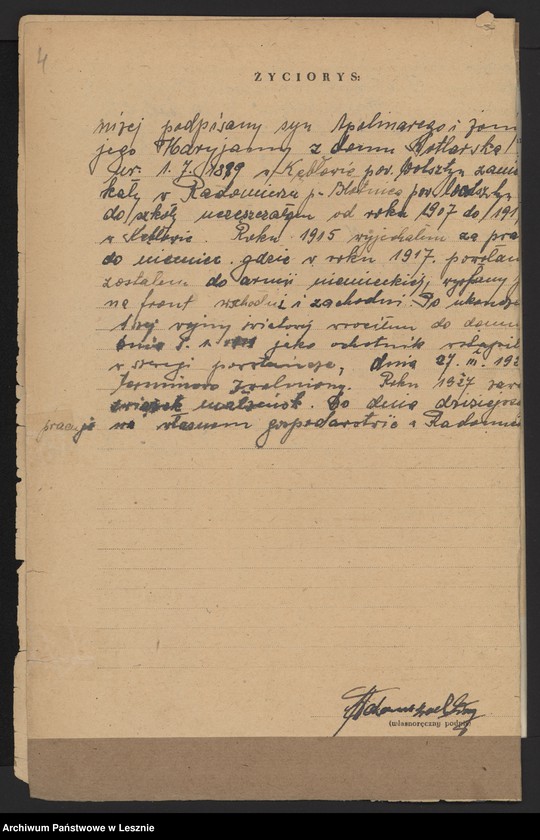 4
ŻYCIORYS:
niżej podpisany syn Apolinarego i żony
jego Maryjanny z domu Kotlarska
ur. 1. 7. 1899 w Kębłowie pow. Wolsztyn zamie
kały w Radomierzu p. Błotnica pow. Wolsztyn
do szkoły uczęszczałem od roku 1907 do 191
w Kębłowie. Roku 1915 wyjechałem za pra
do niemiec gdzie w roku 1917. powołan
zostałem do armii niemieckiej, wysłany
na front wschodni i zachodni. Po ukończe
1szej wojny światowy wrociłem do domu
dnia jako ochotnik
powstańcze, dnia 27. III. 192
Terminowo zwolniony. Roku 1927 zawa
związek małżeńsk. Do dnia dzisiejsze
pracuje na własnem gospodarstwie w Radomie
(własnoręczny podpis)
Archiwum Państwowe w Lesznie